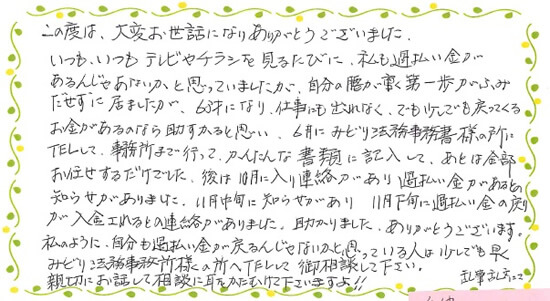 この度は、大変お世話になりありがとうございました。
いつも、いつも テレビやチラシを見るたびに、私も過払い金が
あるんじゃあないかと思っていましたが、自分の腰が重く第一歩がふみ
だせずに居ましたが、63才になり、仕事にも出れなく、でも少しでも戻ってくる
お金があるのなら助すかると思い、6月にみどり法務事務書様の所に
TELして、事務所まで行って、かんたんな書類に記入して、あとは全部
お任せするだけでした、後は10月に入り連絡があり過払い金があるとの
知らせがありました。11月中旬に知らせがあり 11月下旬に過払い金の戻り
が入金されるとの連絡がありました。助かりました、ありがとうございます。
私のように、自分も過払い金が戻るんじゃないかと思っている人は少しでも早く
みどり法務事務所様の所へTELして御相談して下さい。
親切にお話して相談に耳をかたむけて下さいますよ!!